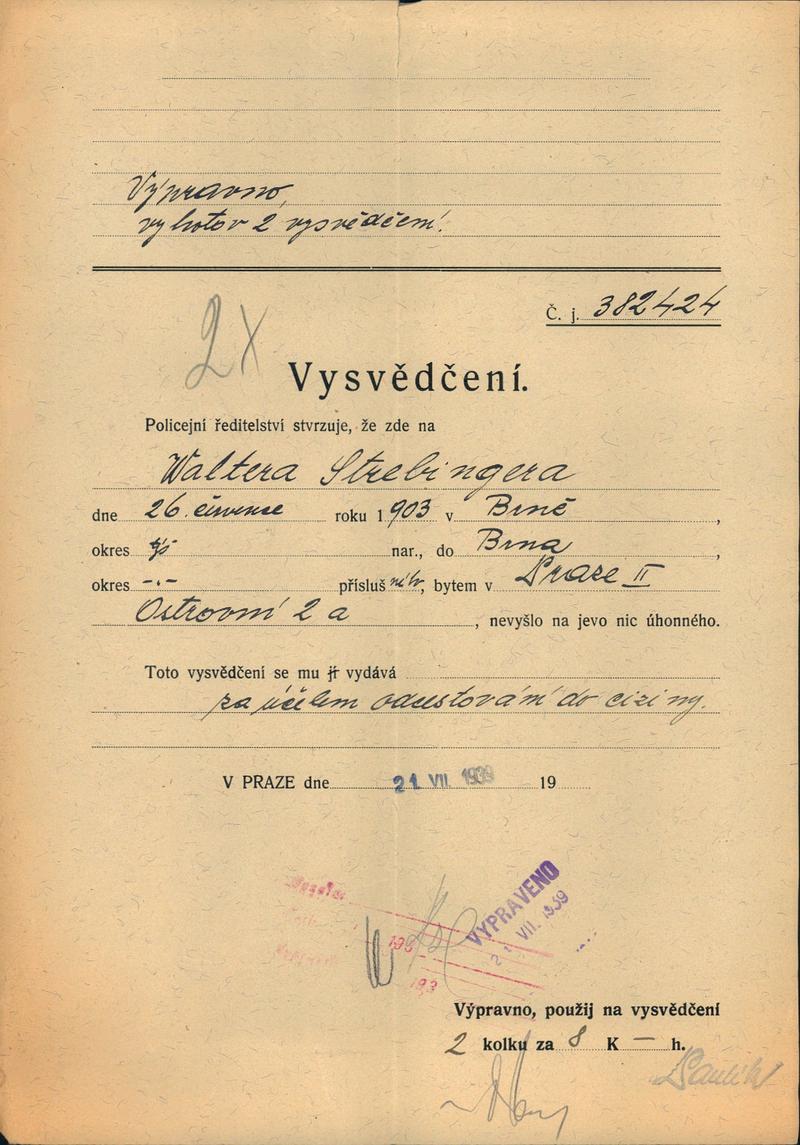 Výpravno,
vyhotov 2 vysvědčení!
Č. j. 382424
2x
Vysvědčení.
Policejní ředitelství stvrzuje, že zde na
Waltera Strebingera
dne 26. července roku 1903 v Brně,
okres nar., do Brna,
okres -"- přísluš, bytem v Praze II
Ostrovní 2 a, nevyšlo na jevo nic úhonného.
Toto vysvědčení se mu jí vydává
za účelem odcestování do ciziny.
V PRAZE dne 21. VII. 1939 19
VYPRAVENO
21. VII. 1939
193
193
Výpravno, použij na vysvědčení
2 kolku za 8 K — h.